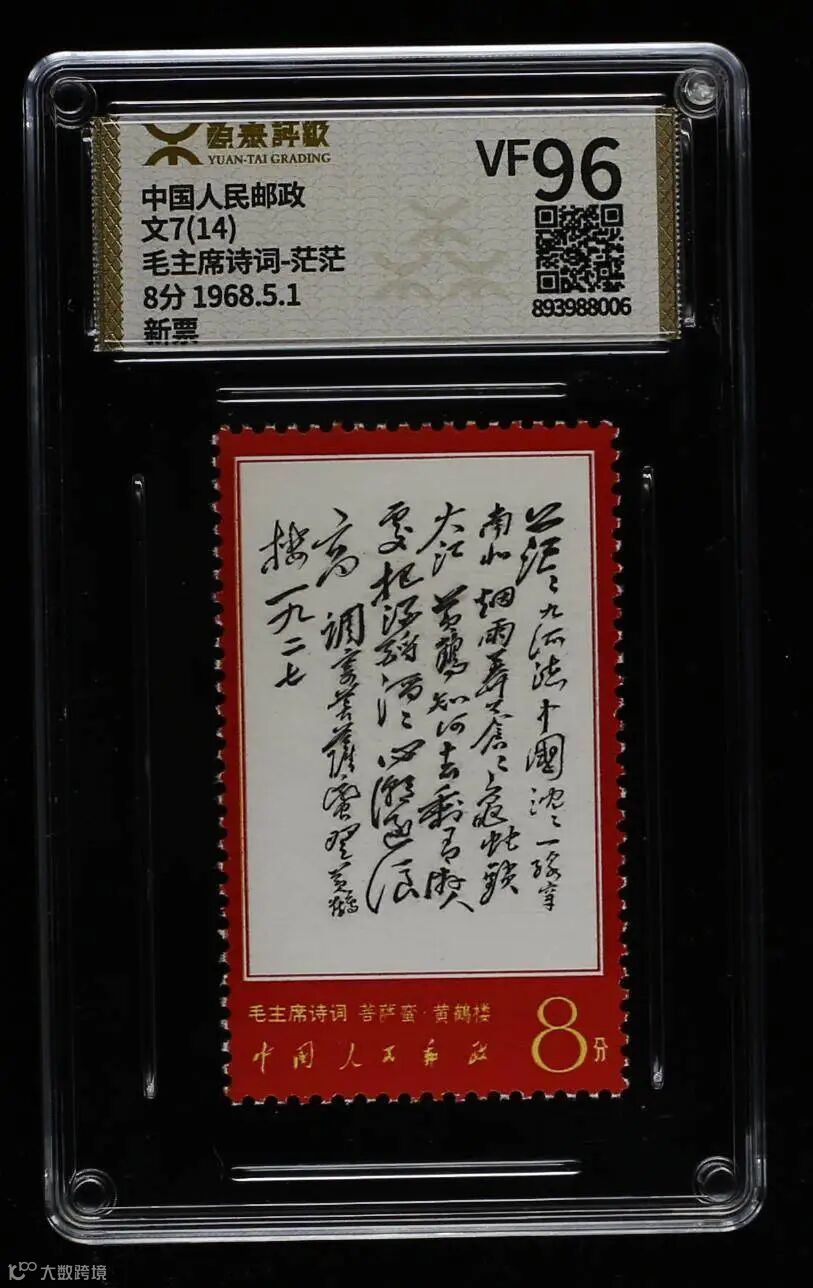 源泰評級
YUAN-TAI GRADING
中国人民邮政
文7(14)
毛主席诗词-茫茫
8分 1968.5.1
新票
VF96
893988006
茫〻九派流中國沉〻一線穿
南北烟雨莽蒼〻龜蛇鎖
大江 黄鶴知何去剩有遊人
處把酒酹滔〻心潮逐浪
高 調寄菩薩蠻登黄鶴
樓一九二七
毛主席诗词 菩萨蛮·黄鹤楼
中国人民邮政
8分
大数跨境